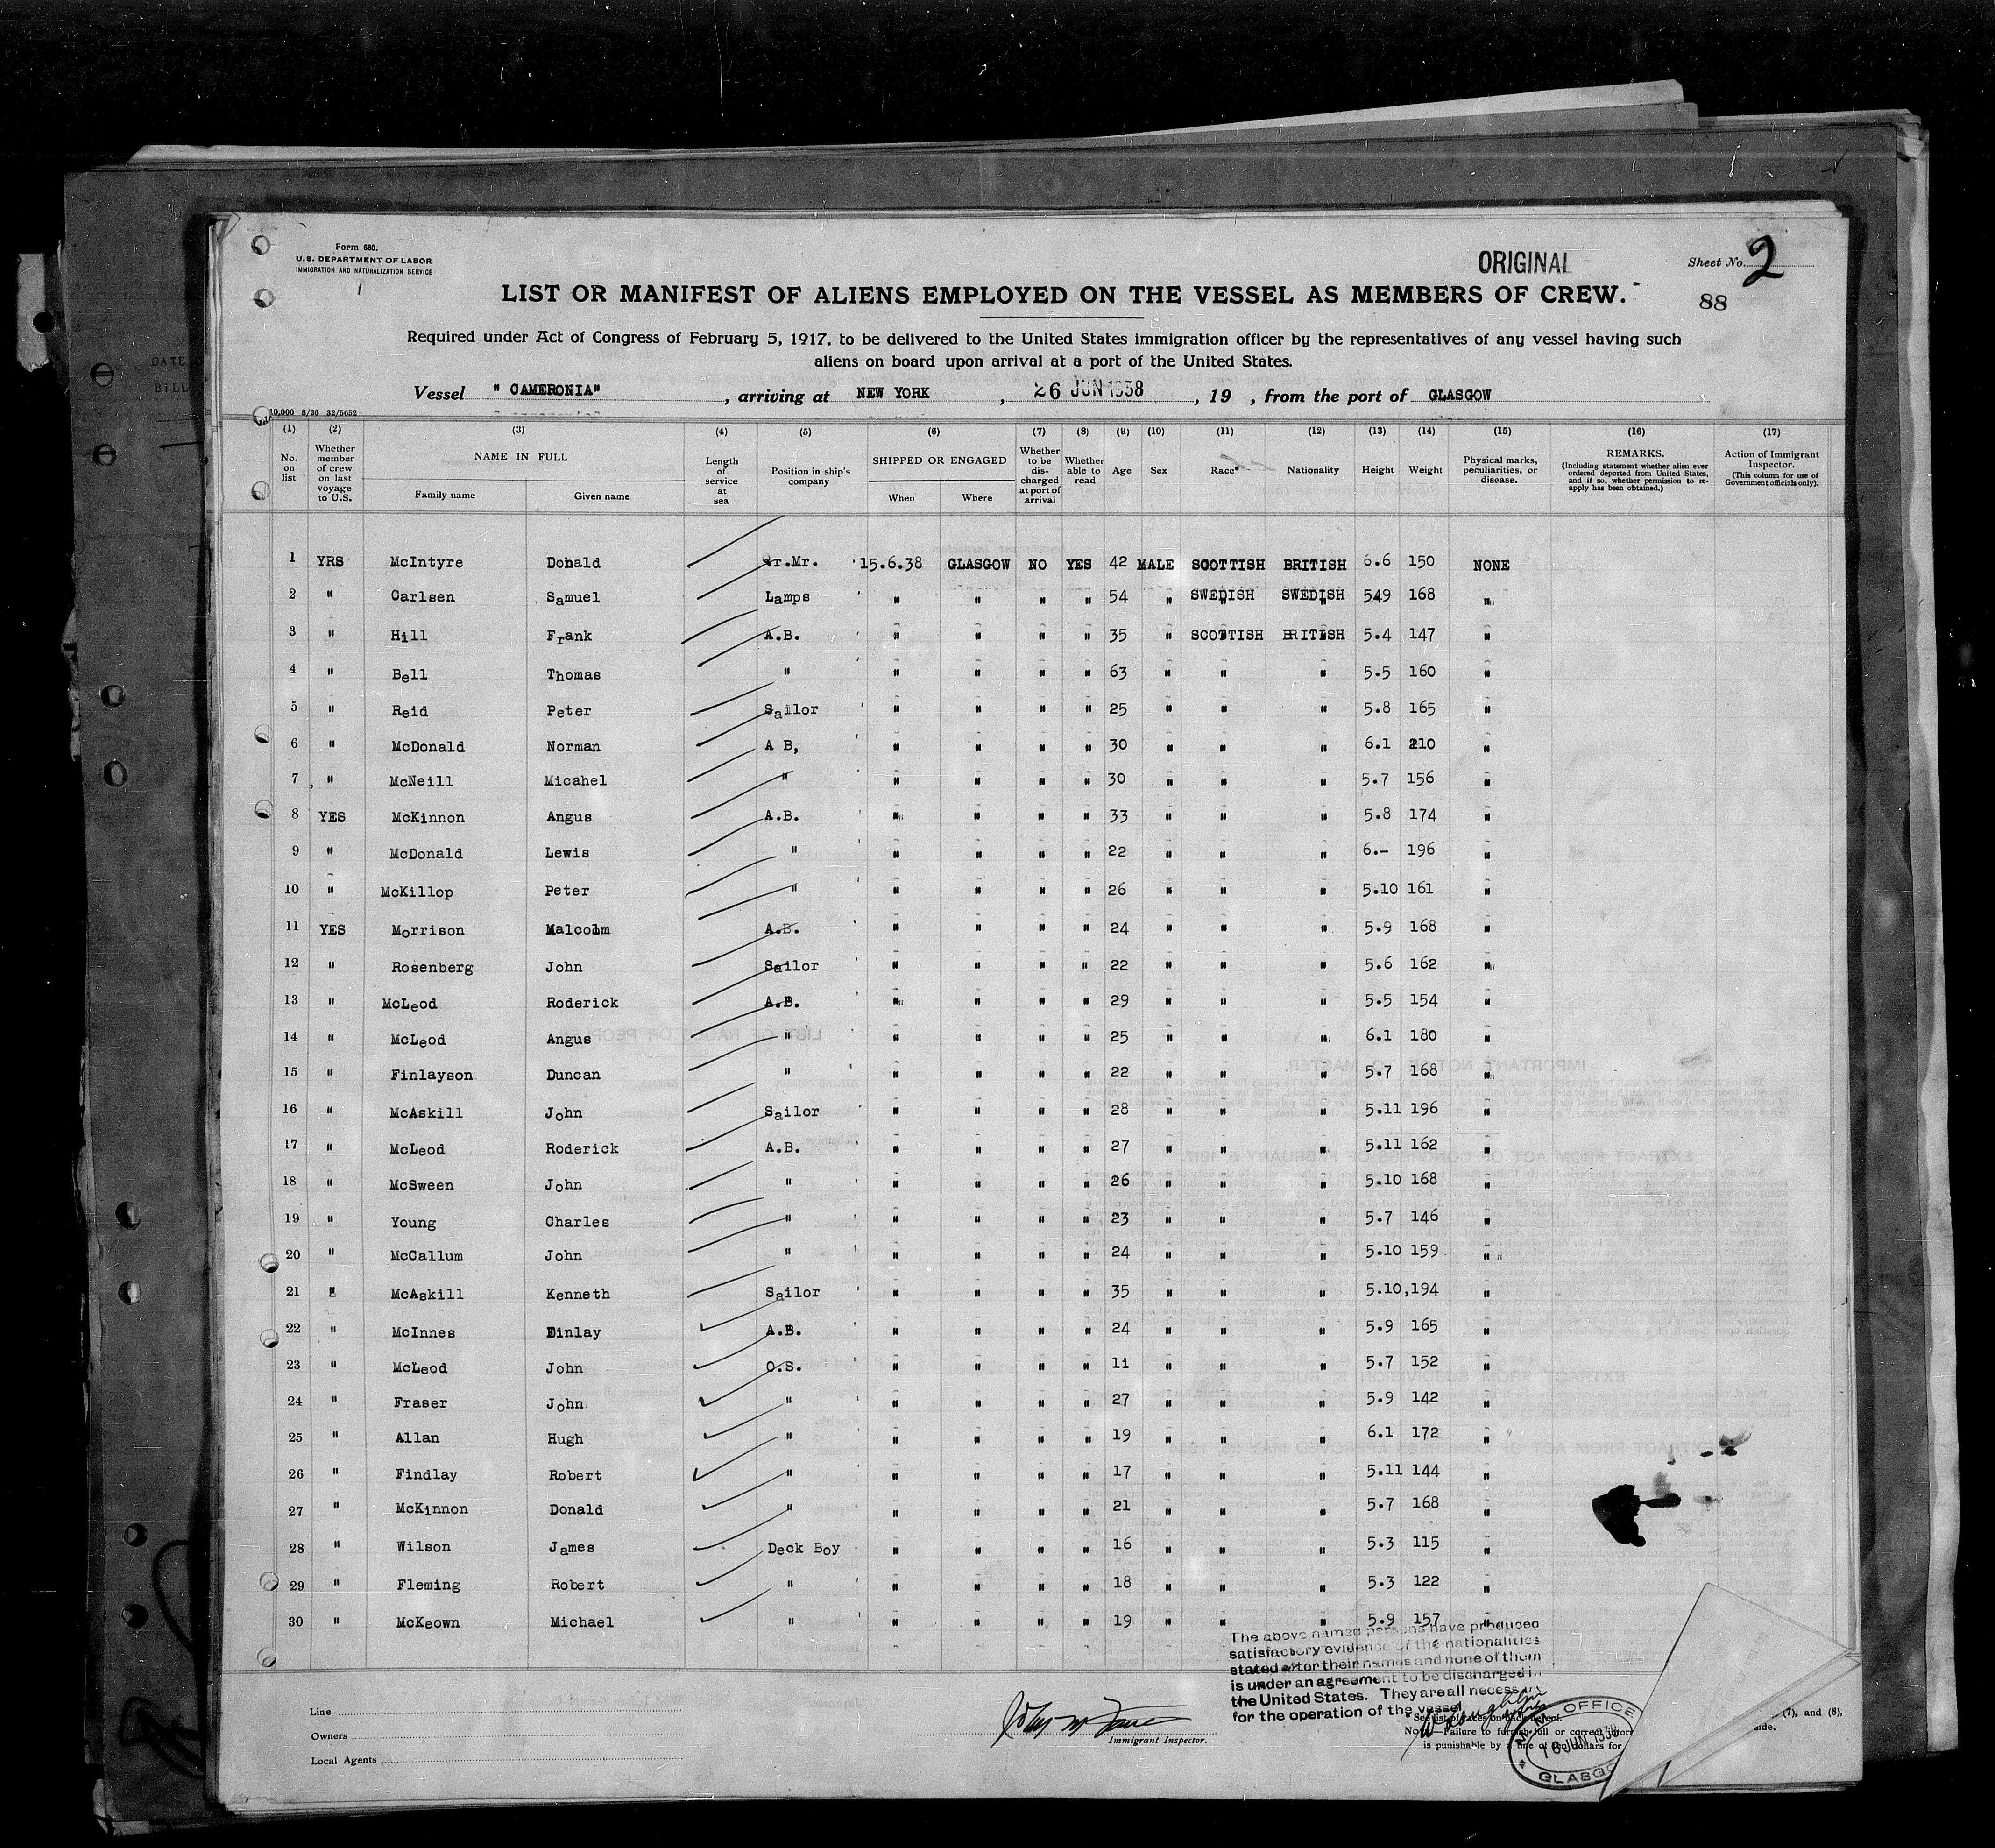 Form 680.
U.S. DEPARTMENT OF LABOR
IMMIGRATION AND NATURALIZATION SERVICE
ORIGINAL
Sheet No. 2
88
LIST OR MANIFEST OF ALIENS EMPLOYED ON THE VESSEL AS MEMBERS OF CREW.
Required under Act of Congress of February 5, 1917, to be delivered to the United States immigration officer by the representatives of any vessel having such
aliens on board upon arrival at a port of the United States.
Vessel " CAMERONIA" , arriving at NEW YORK , 26 JUN 1938 , 19 , from the port of GLASGOW
10,000 8/36 32/5652
(1) (2) (3) (4) (5) (6) (7) (8) (9) (10) (11) (12) (13) (14) (15) (16) (17)
No. on list
Whether member of crew on last voyage to U.S.
NAME IN FULL
Family name Given name
Length of service at sea
Position in ship's company
SHIPPED OR ENGAGED
When Where
Whether to be discharged at port of arrival
Whether able to read
Age
Sex
Race*
Nationality
Height
Weight
Physical marks, peculiarities, or disease.
REMARKS.
(Including statement whether alien ever ordered deported from United States, and if so, whether permission to reapply has been obtained.)
Action of Immigrant Inspector.
(This column for use of Government officials only).
1 YRS McIntyre Donald r.Mr. 15.6.38 GLASGOW NO YES 42 MALE SCOTTISH BRITISH 6.6 150 NONE
2 " Carlsen Samuel Lamps " " " " 54 " SWEDISH SWEDISH 549 168 "
3 " Hill Frank A.B. " " " " 35 " SCOTTISH BRITISH 5.4 147 "
4 " Bell Thomas " " " " " 63 " " " 5.5 160 "
5 " Reid Peter Sailor " " " " 25 " " " 5.8 165 "
6 " McDonald Norman A B, " " " " 30 " " " 6.1 210 "
7 " McNeill Micahel " " " " " 30 " " " 5.7 156 "
8 YES McKinnon Angus A.B. " " " " 33 " " " 5.8 174 "
9 " McDonald Lewis " " " " " 22 " " " 6.- 196 "
10 " McKillop Peter " " " " " 26 " " " 5.10 161 "
11 YES Morrison Malcolm A.B. " " " " 24 " " " 5.9 168 "
12 " Rosenberg John Sailor " " " " 22 " " " 5.6 162 "
13 " McLeod Roderick A.B. " " " " 29 " " " 5.5 154 "
14 " McLeod Angus " " " " " 25 " " " 6.1 180 "
15 " Finlayson Duncan " " " " " 22 " " " 5.7 168 "
16 " McAskill John Sailor " " " " 28 " " " 5.11 196 "
17 " McLeod Roderick A.B. " " " " 27 " " " 5.11 162 "
18 " McSween John " " " " " 26 " " " 5.10 168 "
19 " Young Charles " " " " " 23 " " " 5.7 146 "
20 " McCallum John " " " " " 24 " " " 5.10 159 "
21 " McAskill Kenneth Sailor " " " " 35 " " " 5.10,194 "
22 " McInnes Finlay A.B. " " " " 24 " " " 5.9 165 "
23 " McLeod John O.S. " " " " 11 " " " 5.7 152 "
24 " Fraser John " " " " " 27 " " " 5.9 142 "
25 " Allan Hugh " " " " " 19 " " " 6.1 172 "
26 " Findlay Robert " " " " " 17 " " " 5.11 144 "
27 " McKinnon Donald " " " " " 21 " " " 5.7 168 "
28 " Wilson James Deck Boy " " " " 16 " " " 5.3 115 "
29 " Fleming Robert " " " " " 18 " " " 5.3 122 "
30 " McKeown Michael " " " " " 19 " " " 5.9 157 "
The above named persons have produced
satisfactory evidence of the nationalities
stated after their names and none of them
is under an agreement to be discharged in
the United States. They are all necessary
for the operation of the vessel
Line
Owners
Local Agents
Immigrant Inspector.
* See list of races on back hereof.
Note.—Failure to furnish full or correct
is punishable by a fine of ten dollars for
(7), and (8),
side.
OFFICE
16 JUN 1938
GLASGO
DATE
BILL